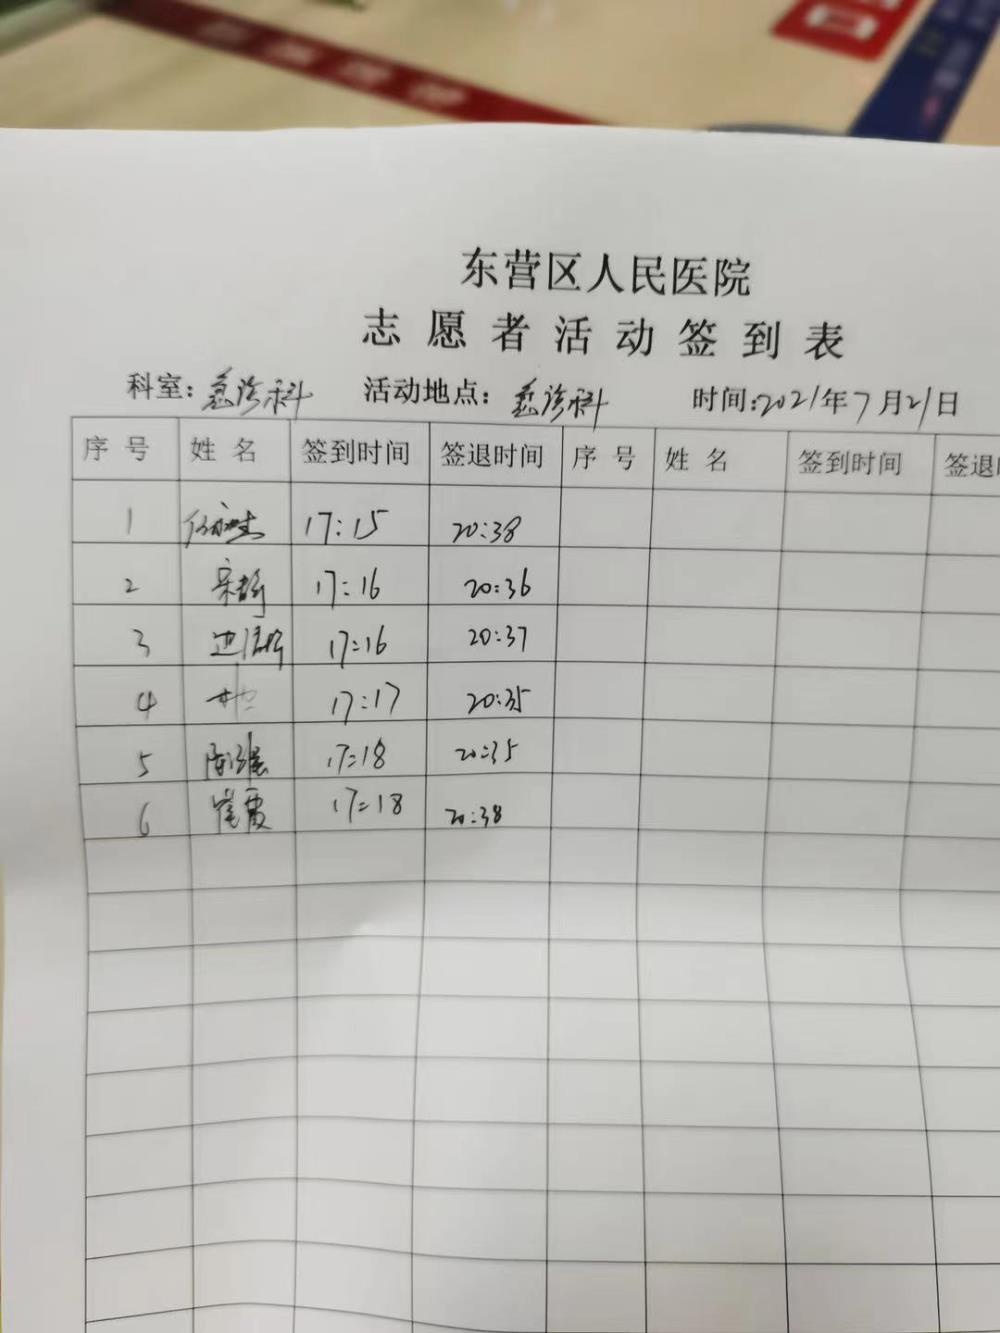 东营区人民医院
志愿者活动签到表
科室：急诊科 活动地点：急诊科 时间：2021年7月21日
序号 姓名 签到时间 签退时间 序号 姓名 签到时间 签退
1 17:15 20:38
2 17:16 20:36
3 17:16 20:37
4 17:17 20:35
5 17:18 20:35
6 崔霞 17:18 20:38